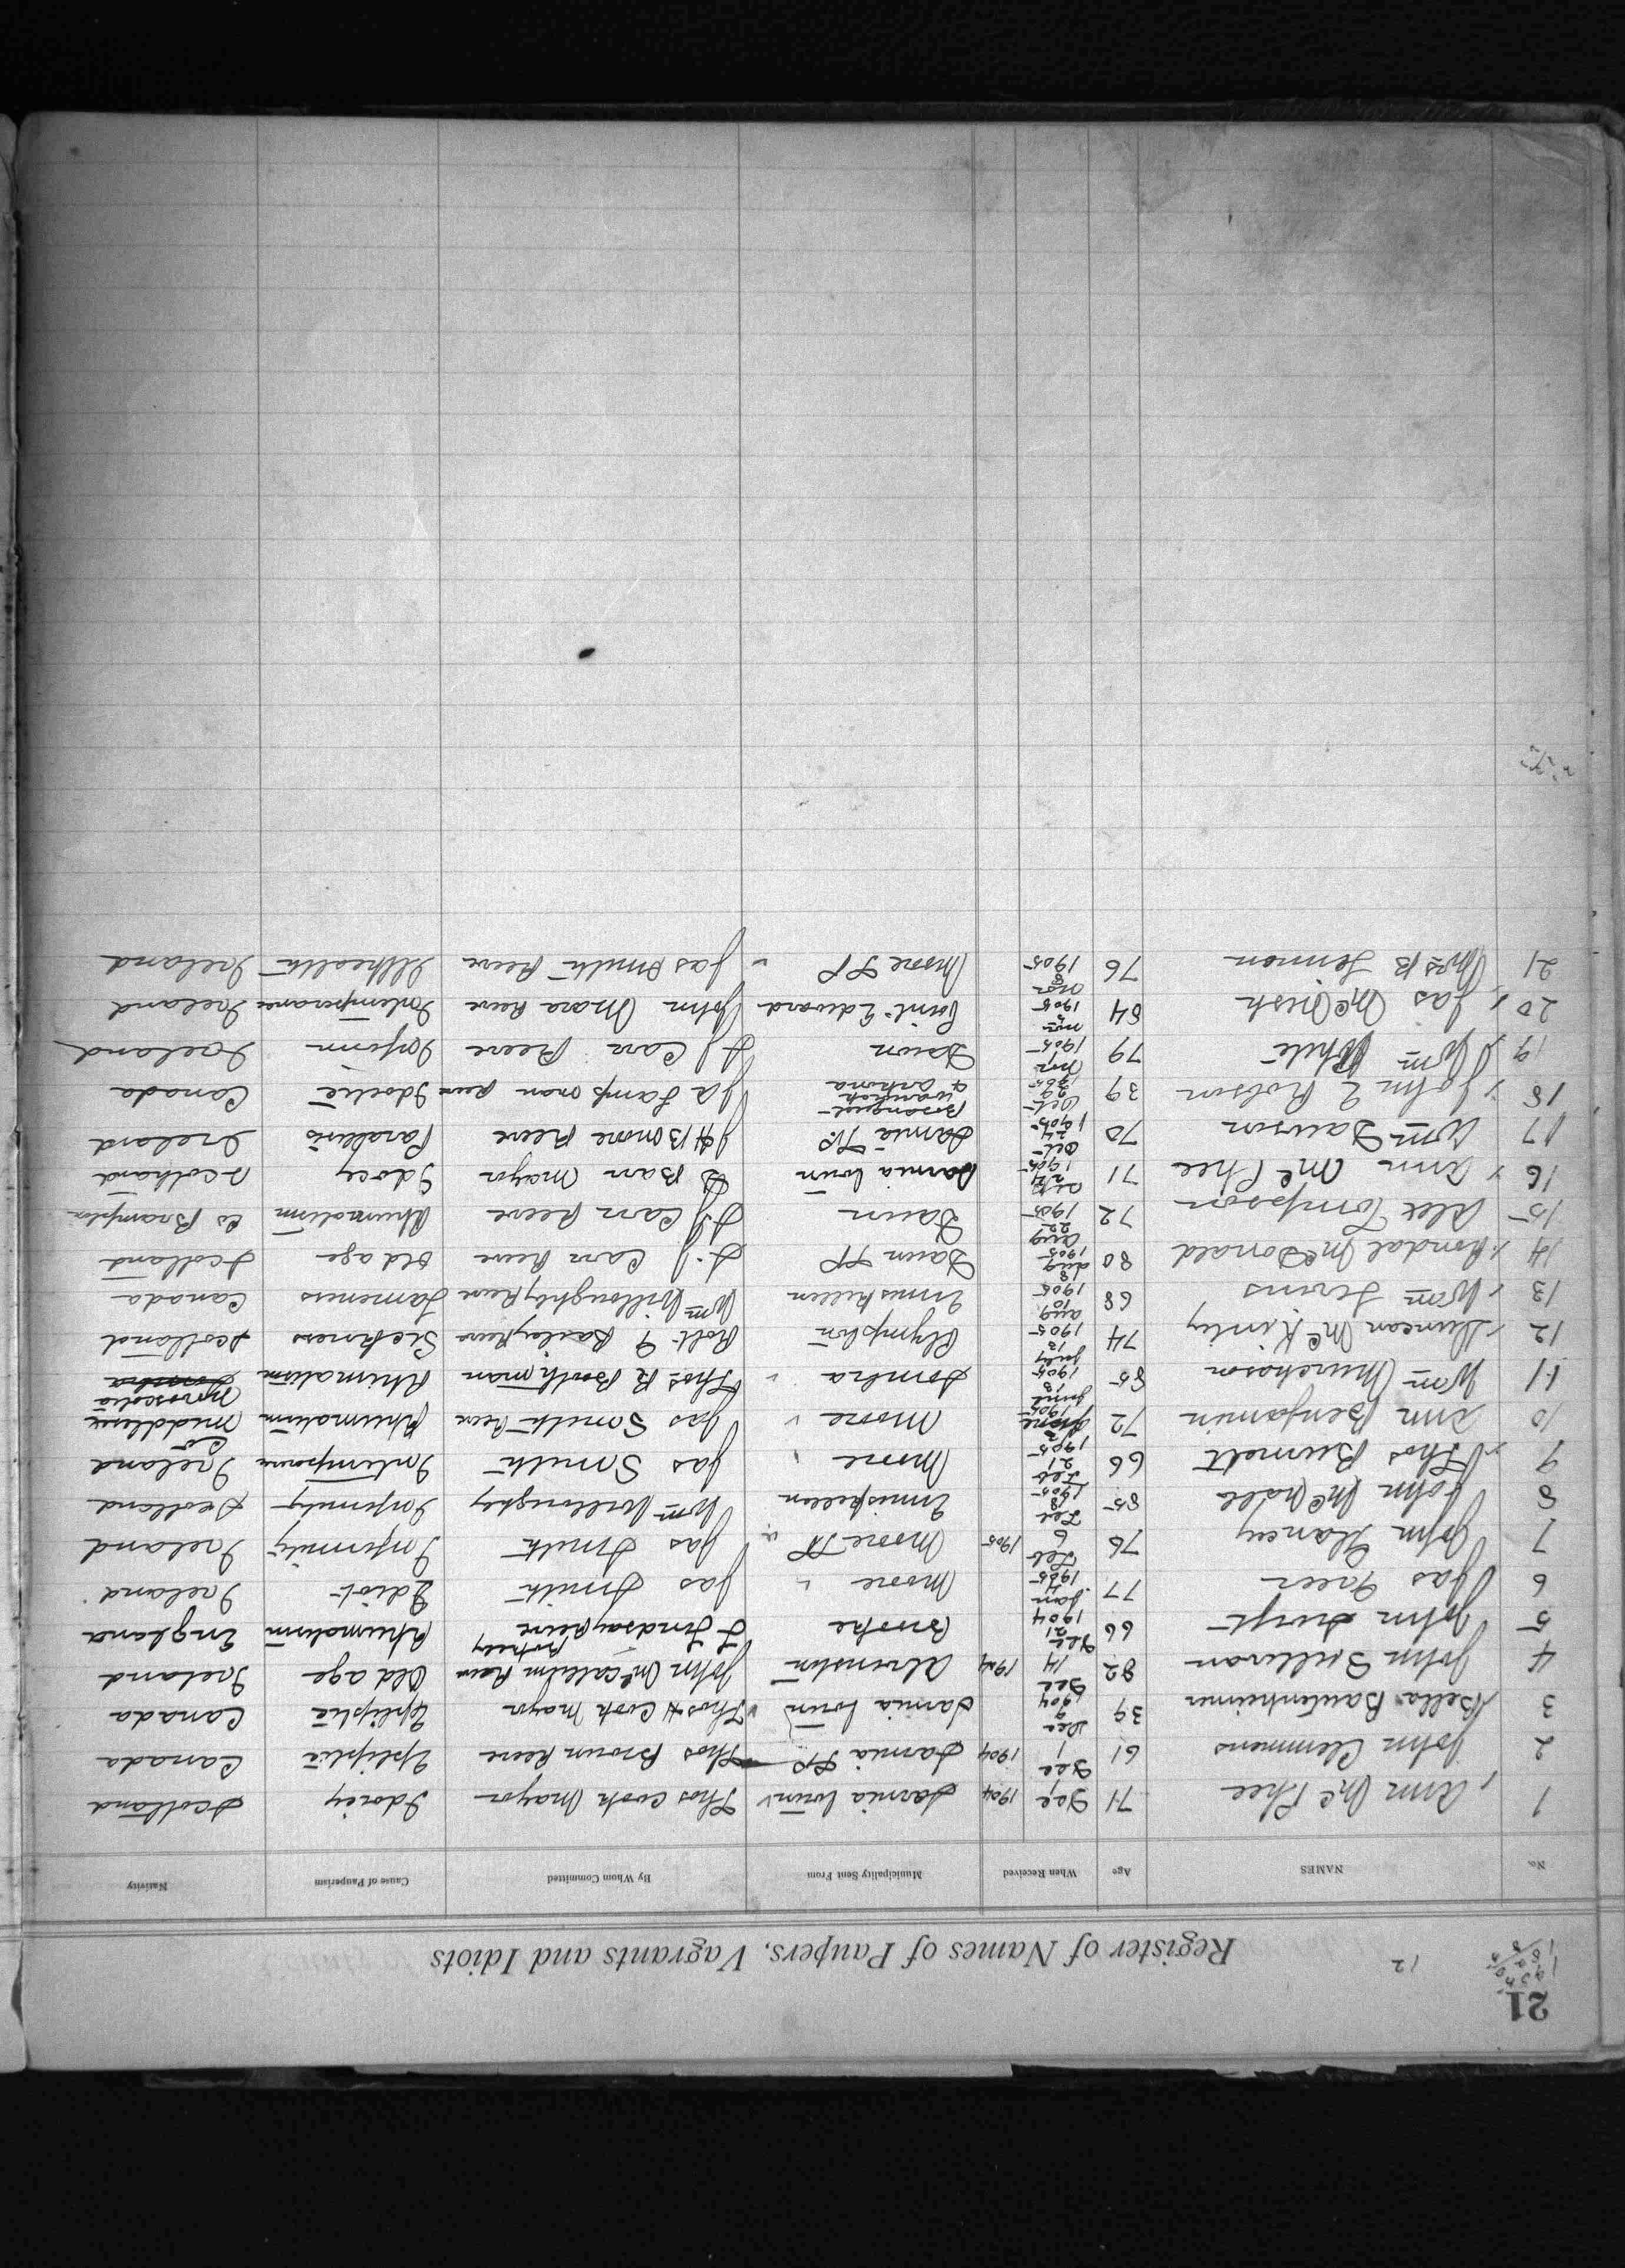 21
12
Register of Names of Paupers, Vagrants and Idiots
No. NAMES Age When Received Municipality Sent From By Whom Committed Cause of Pauperism Nativity
1 Ann McPhee 71 Dec 1904 Sarnia town Thos Cook Mayor Idocy Scotland
2 John Clemmens 61 Dec 1 1904 Sarnia TP Thos Brown Reeve Epliptic Canada
3 Bella 39 Dec 9 1904 Sarnia town Thos H Cook Mayor Epliptic Canada
4 John Sullivan 82 Dec 14 1904 Alvinston John McCallum Reeve Old age Ireland
5 John Swift 66 Dec 21 1904 Brooke F Lindsay Reeve Rhumatism England
6 Jas Greer 77 Jan 4 1905 Moore Jas Smith Idiot Ireland
7 John Clancy 76 Feb 6 1905 Moore TP Jas Smith Infirmity Ireland
8 John McNabb 85 Feb 18 1905 Enniskillen Wm Willoughby Infirmity Scotland
9 Thos Burnett 66 Feb 21 1905 Moore Jas Smith Intemperance Ireland
10 Ann Benjamin 72 1905 Moore Jas Smith Reeve Rhumatism Middlesex Co
11 Wm Murchason 85 June 13 1905 Sombra Thos R Boothman Rhumatism Novoscotia
12 Duncan McKinley 74 July 12 1905 Plympton Robt G Bailey Reeve Sickness Scotland
13 Wm Levins 68 Aug 10 1905 Enniskillen Wm Willoughby Reeve Lameness Canada
14 Rondal McDonald 80 Aug 18 1905 Dawn TP S.J. Carr Reeve Old age Scotland
15 Alex Tompson 72 Aug 22 1905 Dawn S J Carr Reeve Rhumatism Co Brampton
16 Ann McPhee 71 Sep 24 1905 Sarnia town D Barr Mayor Idocy Scotland
17 Wm Dawson 70 Oct 24 1905 Sarnia TP. H B Moore Reeve Paralisis Ireland
18 John E Robson 39 Oct 29 1905 Bosanquet Warwick & Arkona J A Lampman Reeve Idoitic Canada
19 Wm White 79 Nov 1905 Dawn S J Carr Reeve Infirm Ireland
20 Jas McNish 64 Nov 1905 Point Edward John Mara Reeve Intemperance Ireland
21 Mrs B Lennon 76 Nov 8 1905 Moore TP Jas Smith Reeve Illhealth Ireland